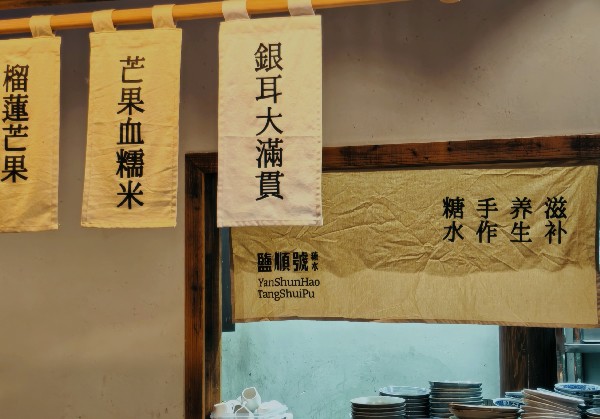 榴蓮芒果
芒果血糯米
銀耳大滿貫
滋补
养生
手作
糖水
鹽順號
糖水
YanShunHao
TangShuiPu